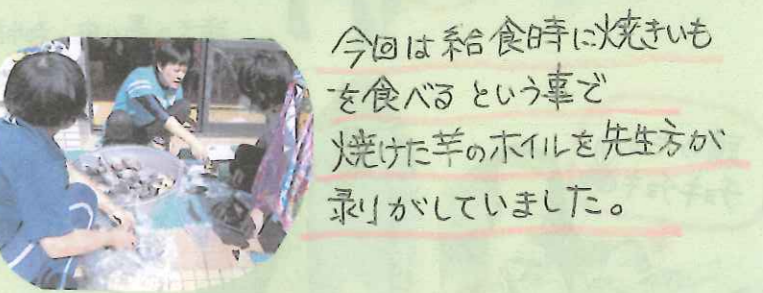 今回は給食時に焼きいも
を食べるという事で
焼けた芋のホイルを先生方が
剥りがしていました。